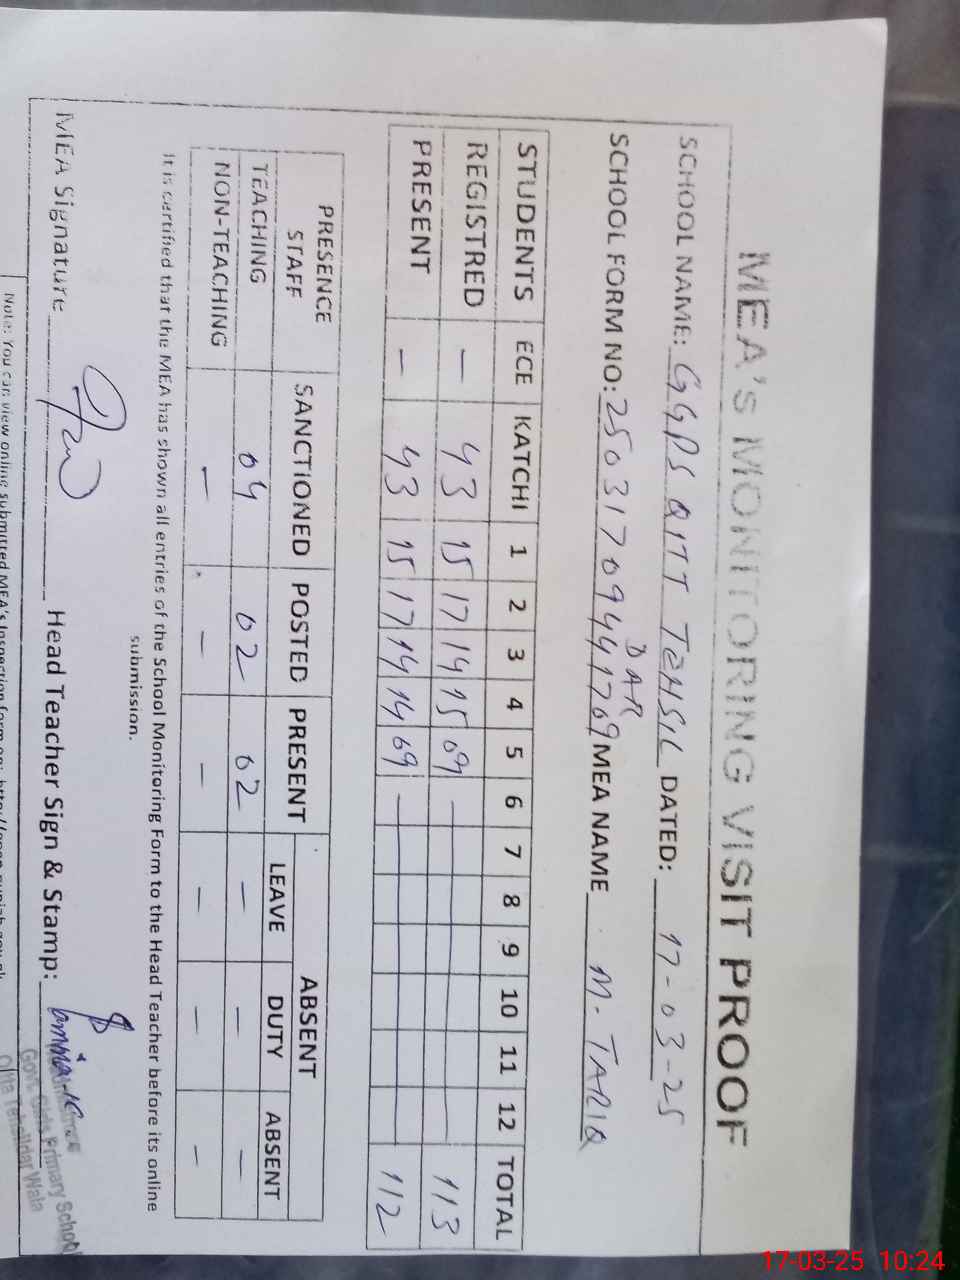 MEA'S MONITORING VISIT PROOF
SCHOOL NAME: GGPS QITT TEHSIL DAR DATED: 17-03-25
SCHOOL FORM NO: 25031709441709 MEA NAME M. TARIQ
STUDENTS ECE KATCHI 1 2 3 4 5 6 7 8 9 10 11 12 TOTAL
REGISTRED — 43 15 17 14 15 09 — 113
PRESENT — 43 15 17 14 14 09 — 112
PRESENCE STAFF SANCTIONED POSTED PRESENT ABSENT
LEAVE DUTY ABSENT
TEACHING 04 02 02 — — —
NON-TEACHING — — — — — —
It is certified that the MEA has shown all entries of the School Monitoring Form to the Head Teacher before its online
submission.
MEA Signature Head Teacher Sign & Stamp:
Govt. Girls Primary School
Qitta Tehsildar Wala
Note: You can view online submitted MEA's Inspection form on:
17-03-25 10:24